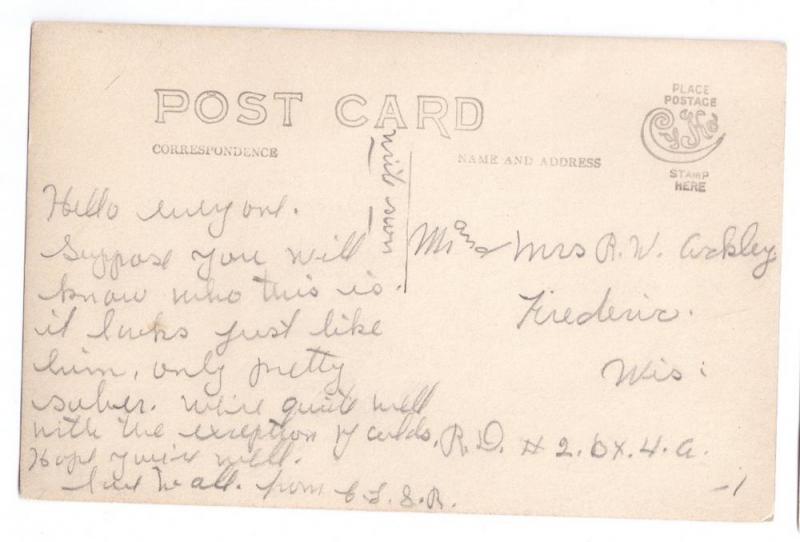 POST CARD
CORRESPONDENCE
NAME AND ADDRESS
PLACE
POSTAGE
CyKo
STAMP
HERE
Hello everyone.
Suppose you will
know who this is.
it looks just like
him, only pretty
sober. We're quite well
with the exception of colds.
Hope you're well.
Love to all. from
will
soon
Mr and Mrs R. W. Ackley
Frederic.
Wis:
R.D. # 2. Bx. 4. a.